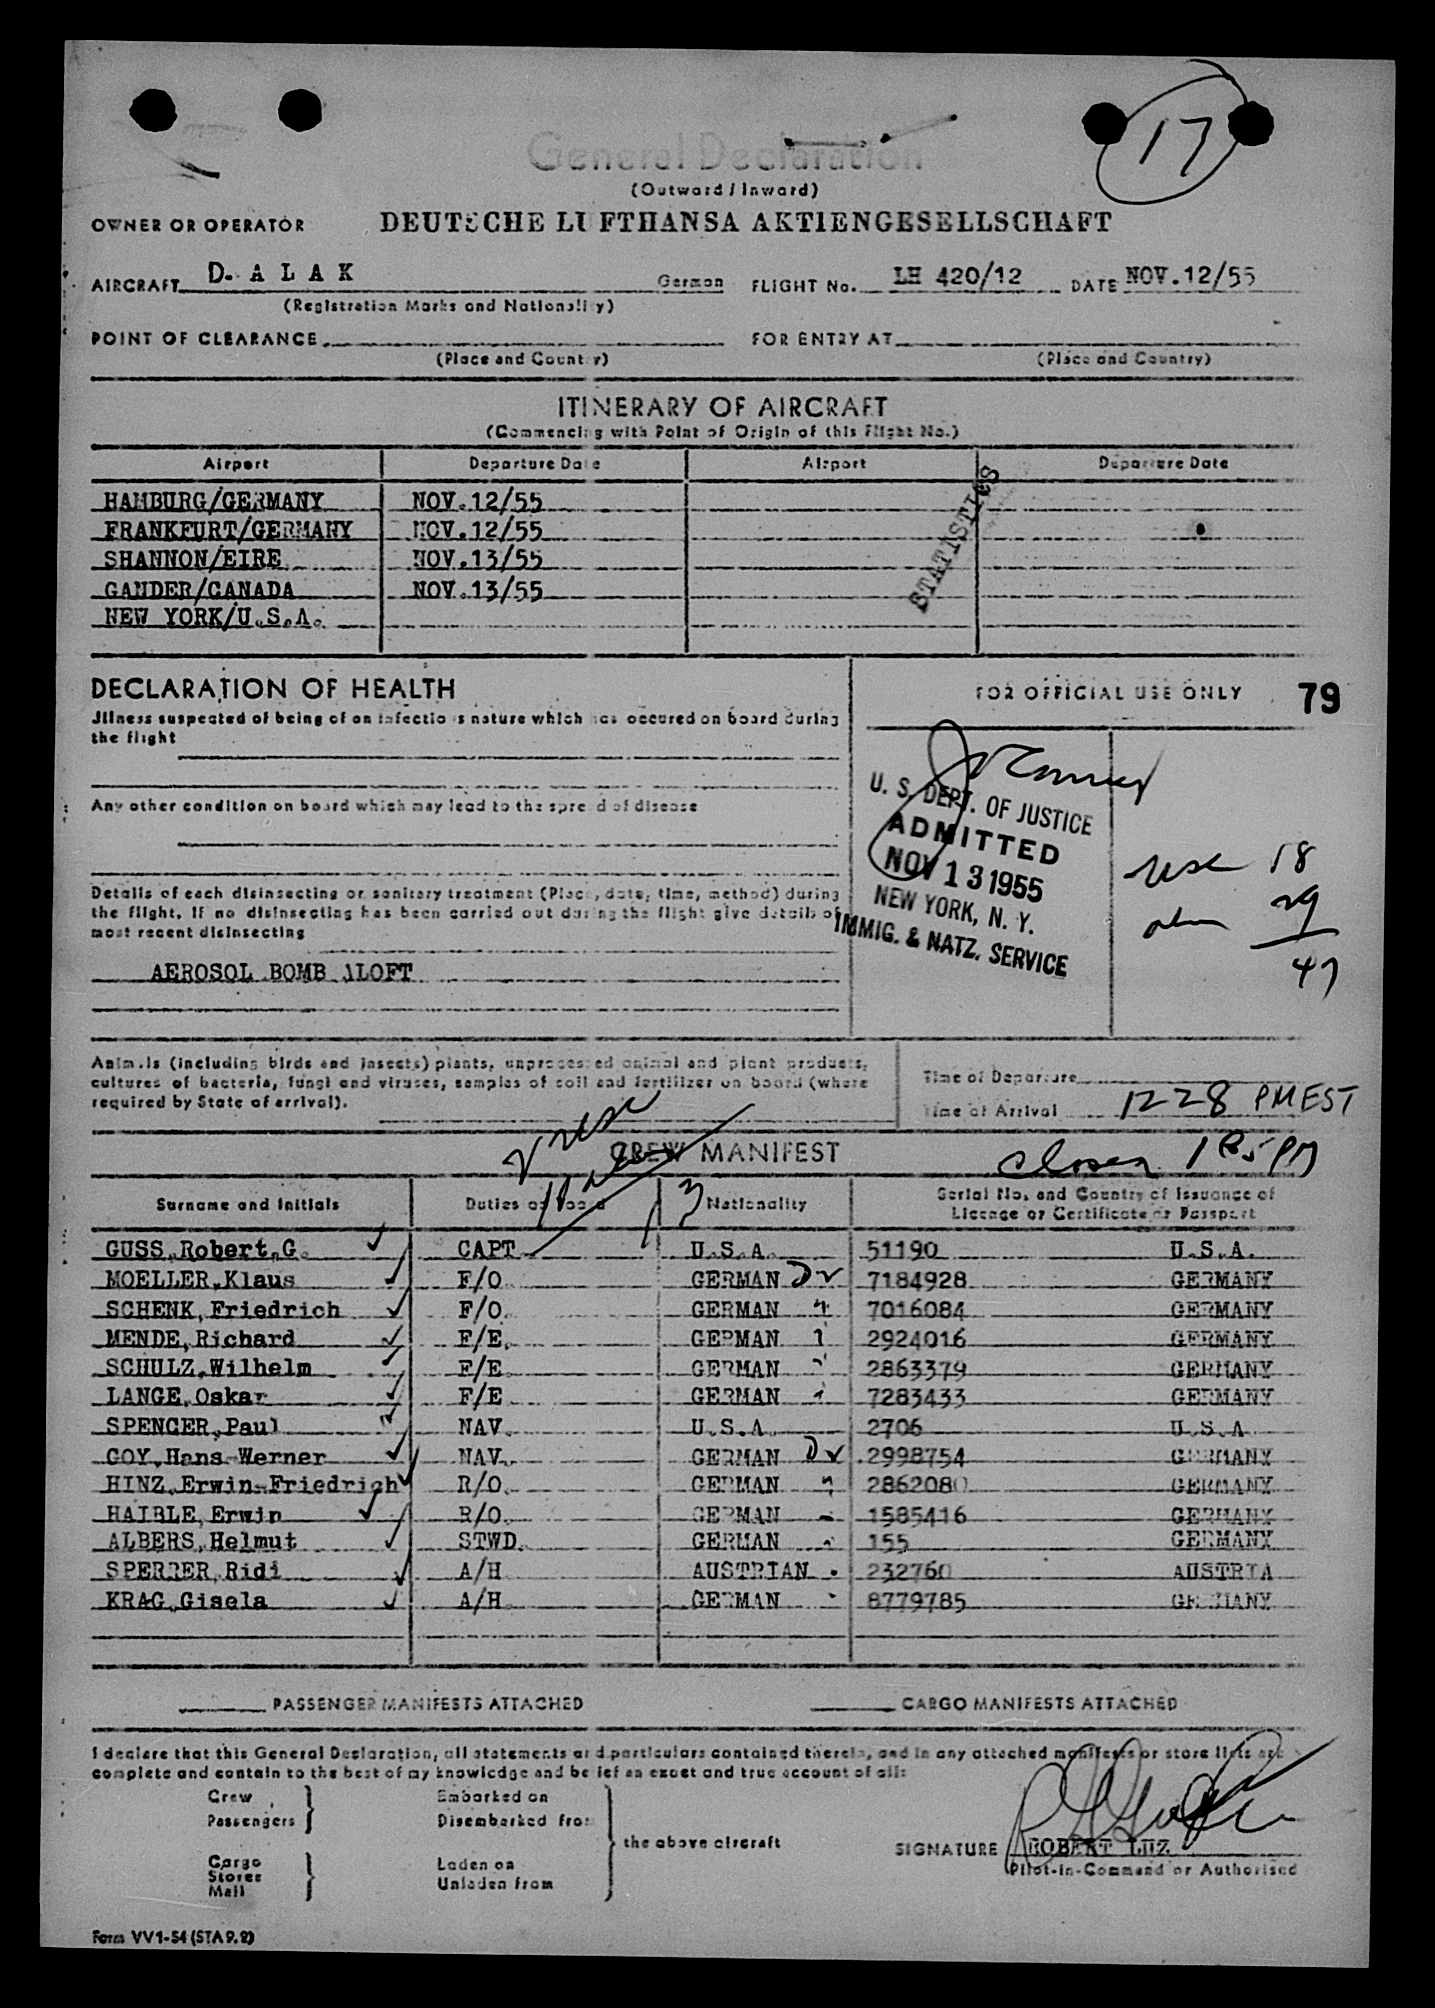 17
General Declaration
(Outward / Inward)
OWNER OR OPERATOR DEUTSCHE LUFTHANSA AKTIENGESELLSCHAFT
AIRCRAFT D. A L A K German FLIGHT No. LH 420/12 DATE NOV.12/55
(Registration Marks and Nationality)
POINT OF CLEARANCE FOR ENTRY AT
(Place and Country) (Place and Country)
ITINERARY OF AIRCRAFT
(Commencing with Point of Origin of this Flight No.)
Airport Departure Date Airport Departure Date
HAMBURG/GERMANY NOV.12/55
FRANKFURT/GERMANY NOV.12/55
SHANNON/EIRE NOV.13/55
GANDER/CANADA NOV.13/55
NEW YORK/U.S.A.
STATISTICS
DECLARATION OF HEALTH
FOR OFFICIAL USE ONLY 79
Jllness suspected of being of an infectious nature which has occured on board during
the flight
Any other condition on board which may lead to the spread of disease
Details of each disinsecting or sanitary treatment (Place, date, time, method) during
the flight. If no disinsecting has been carried out during the flight give details of
most recent disinsecting
AEROSOL BOMB ALOFT
U. S. DEPT. OF JUSTICE
ADMITTED
NOV 13 1955
NEW YORK, N. Y.
IMMIG. & NATZ. SERVICE
usc 18
alien 29
47
Animals (including birds and insects) plants, unprocessed animal and plant products,
cultures of bacteria, fungi and viruses, samples of soil and fertilizer on board (where
required by State of arrival).
Time of Departure
Time of Arrival 1228 PM EST
2 usc
11
13
CREW MANIFEST
Surname and Initials Duties on board Nationality Serial No. and Country of Issuance of
Licence or Certificate or Passport
GUSS,Robert,G. CAPT U.S.A. 51190 U.S.A.
MOELLER,Klaus F/O GERMAN 7184928 GERMANY
SCHENK,Friedrich F/O. GERMAN 7016084 GERMANY
MENDE,Richard F/E. GERMAN 2924016 GERMANY
SCHULZ,Wilhelm F/E GERMAN 2863379 GERMANY
LANGE,Oskar F/E GERMAN 7283433 GERMANY
SPENCER,Paul NAV. U.S.A. 2706 U.S.A
GOY,Hans-Werner NAV. GERMAN 2998754 GERMANY
HINZ,Erwin-Friedrich R/O. GERMAN 2862080 GERMANY
HAIBLE,Erwin R/O. GERMAN 1585416 GERMANY
ALBERS,Helmut STWD. GERMAN 155 GERMANY
SPERRER,Ridi A/H AUSTRIAN 232760 AUSTRIA
KRAG,Gisela A/H GERMAN 8779785 GERMANY
PASSENGER MANIFESTS ATTACHED CARGO MANIFESTS ATTACHED
I declare that this General Declaration, all statements and particulars contained therein, and in any attached manifests or store lists are
complete and contain to the best of my knowledge and belief an exact and true account of all:
Crew Embarked on
Passengers Disembarked from
the above aircraft
Cargo Laden on
Stores Unladen from
Mail
SIGNATURE ROBERT LUZ
Pilot-in-Command or Authorised
Form VV1-54 (STA 9.2)